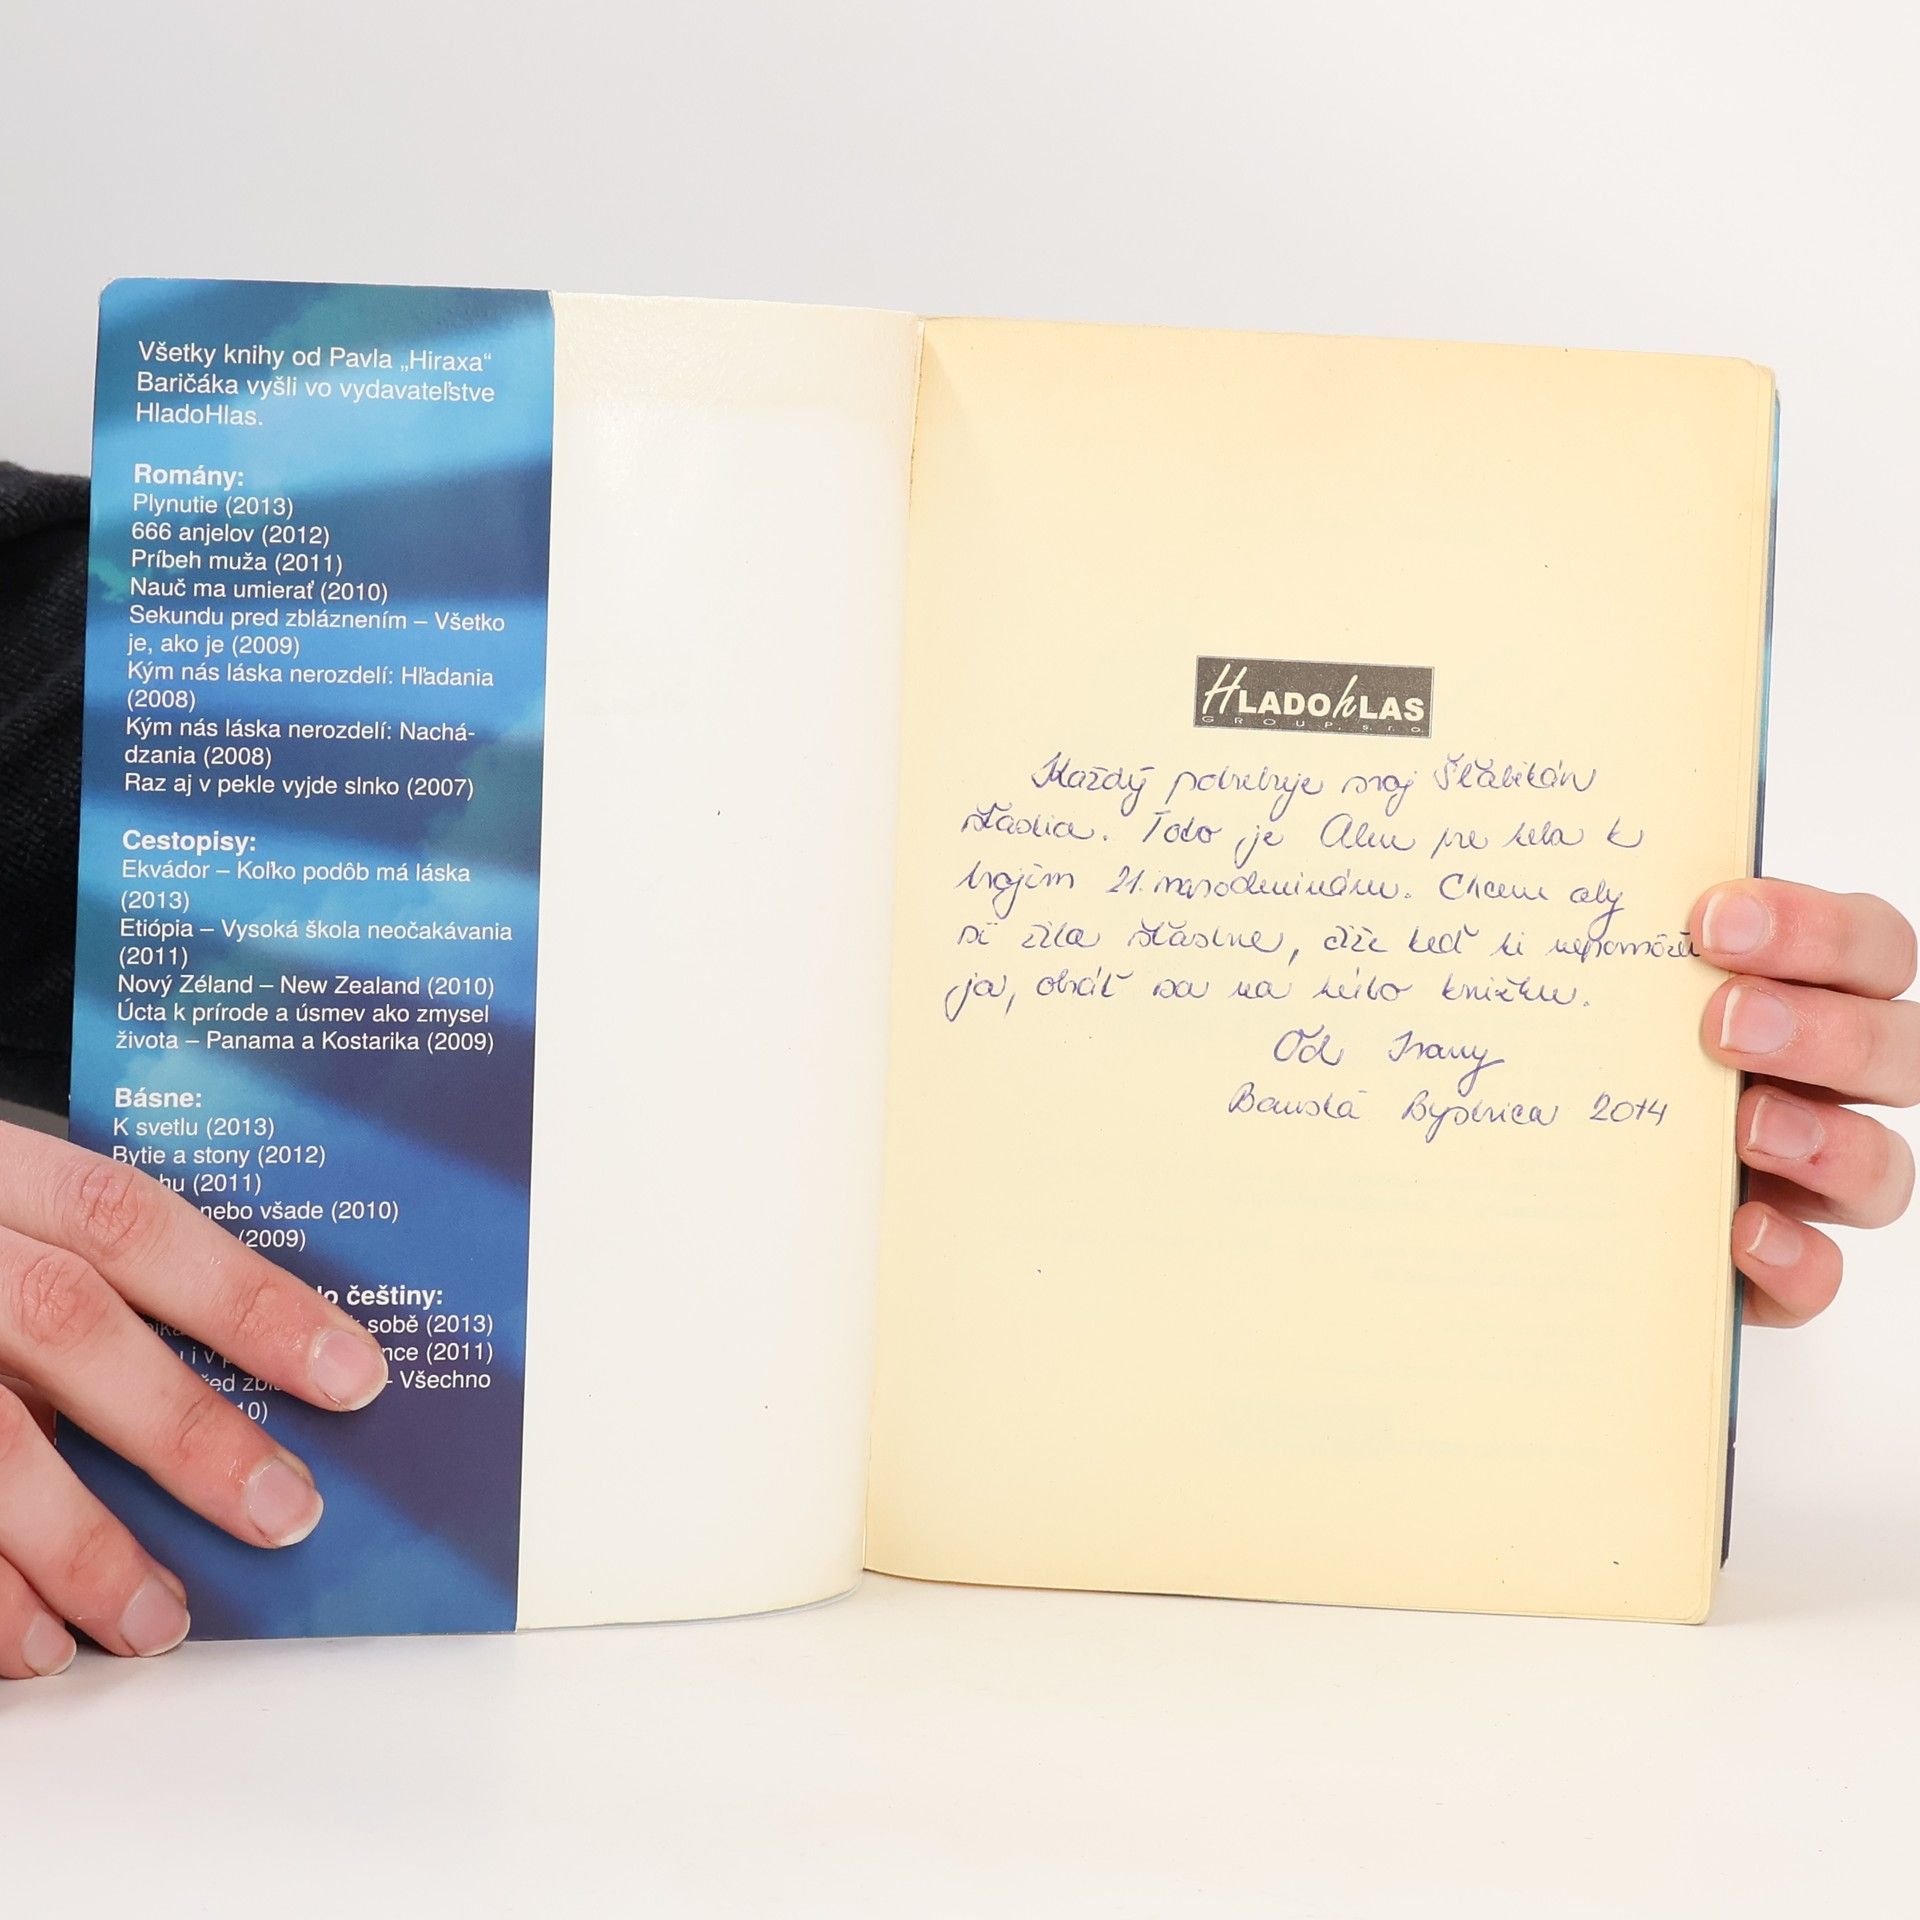 Všetky knihy od Pavla „Hiraxa“
Baričáka vyšli vo vydavateľstve
HladoHlas.
Romány:
Plynutie (2013)
666 anjelov (2012)
Príbeh muža (2011)
Nauč ma umierať (2010)
Sekundu pred zbláznením – Všetko
je, ako je (2009)
Kým nás láska nerozdelí: Hľadania
(2008)
Kým nás láska nerozdelí: Nachá-
dzania (2008)
Raz aj v pekle vyjde slnko (2007)
Cestopisy:
Ekvádor – Koľko podôb má láska
(2013)
Etiópia – Vysoká škola neočakávania
(2011)
Nový Zéland – New Zealand (2010)
Úcta k prírode a úsmev ako zmysel
života – Panama a Kostarika (2009)
Básne:
K svetlu (2013)
Bytie a stony (2012)
(2011)
nebo všade (2010)
(2009)
češtiny:
sobě (2013)
(2011)
– Všechno
HLADOhLAS
GROUP, s.r.o
Každý potrebuje svoj Šlabikár
šťastia. Toto je pre teba k
tvojim 21. narodeninám. Chcem aby
si žila šťastne, čiže keď ti nepomôžem
ja, obráť sa na túto knižku.
Od Ivany
Banská Bystrica 2014